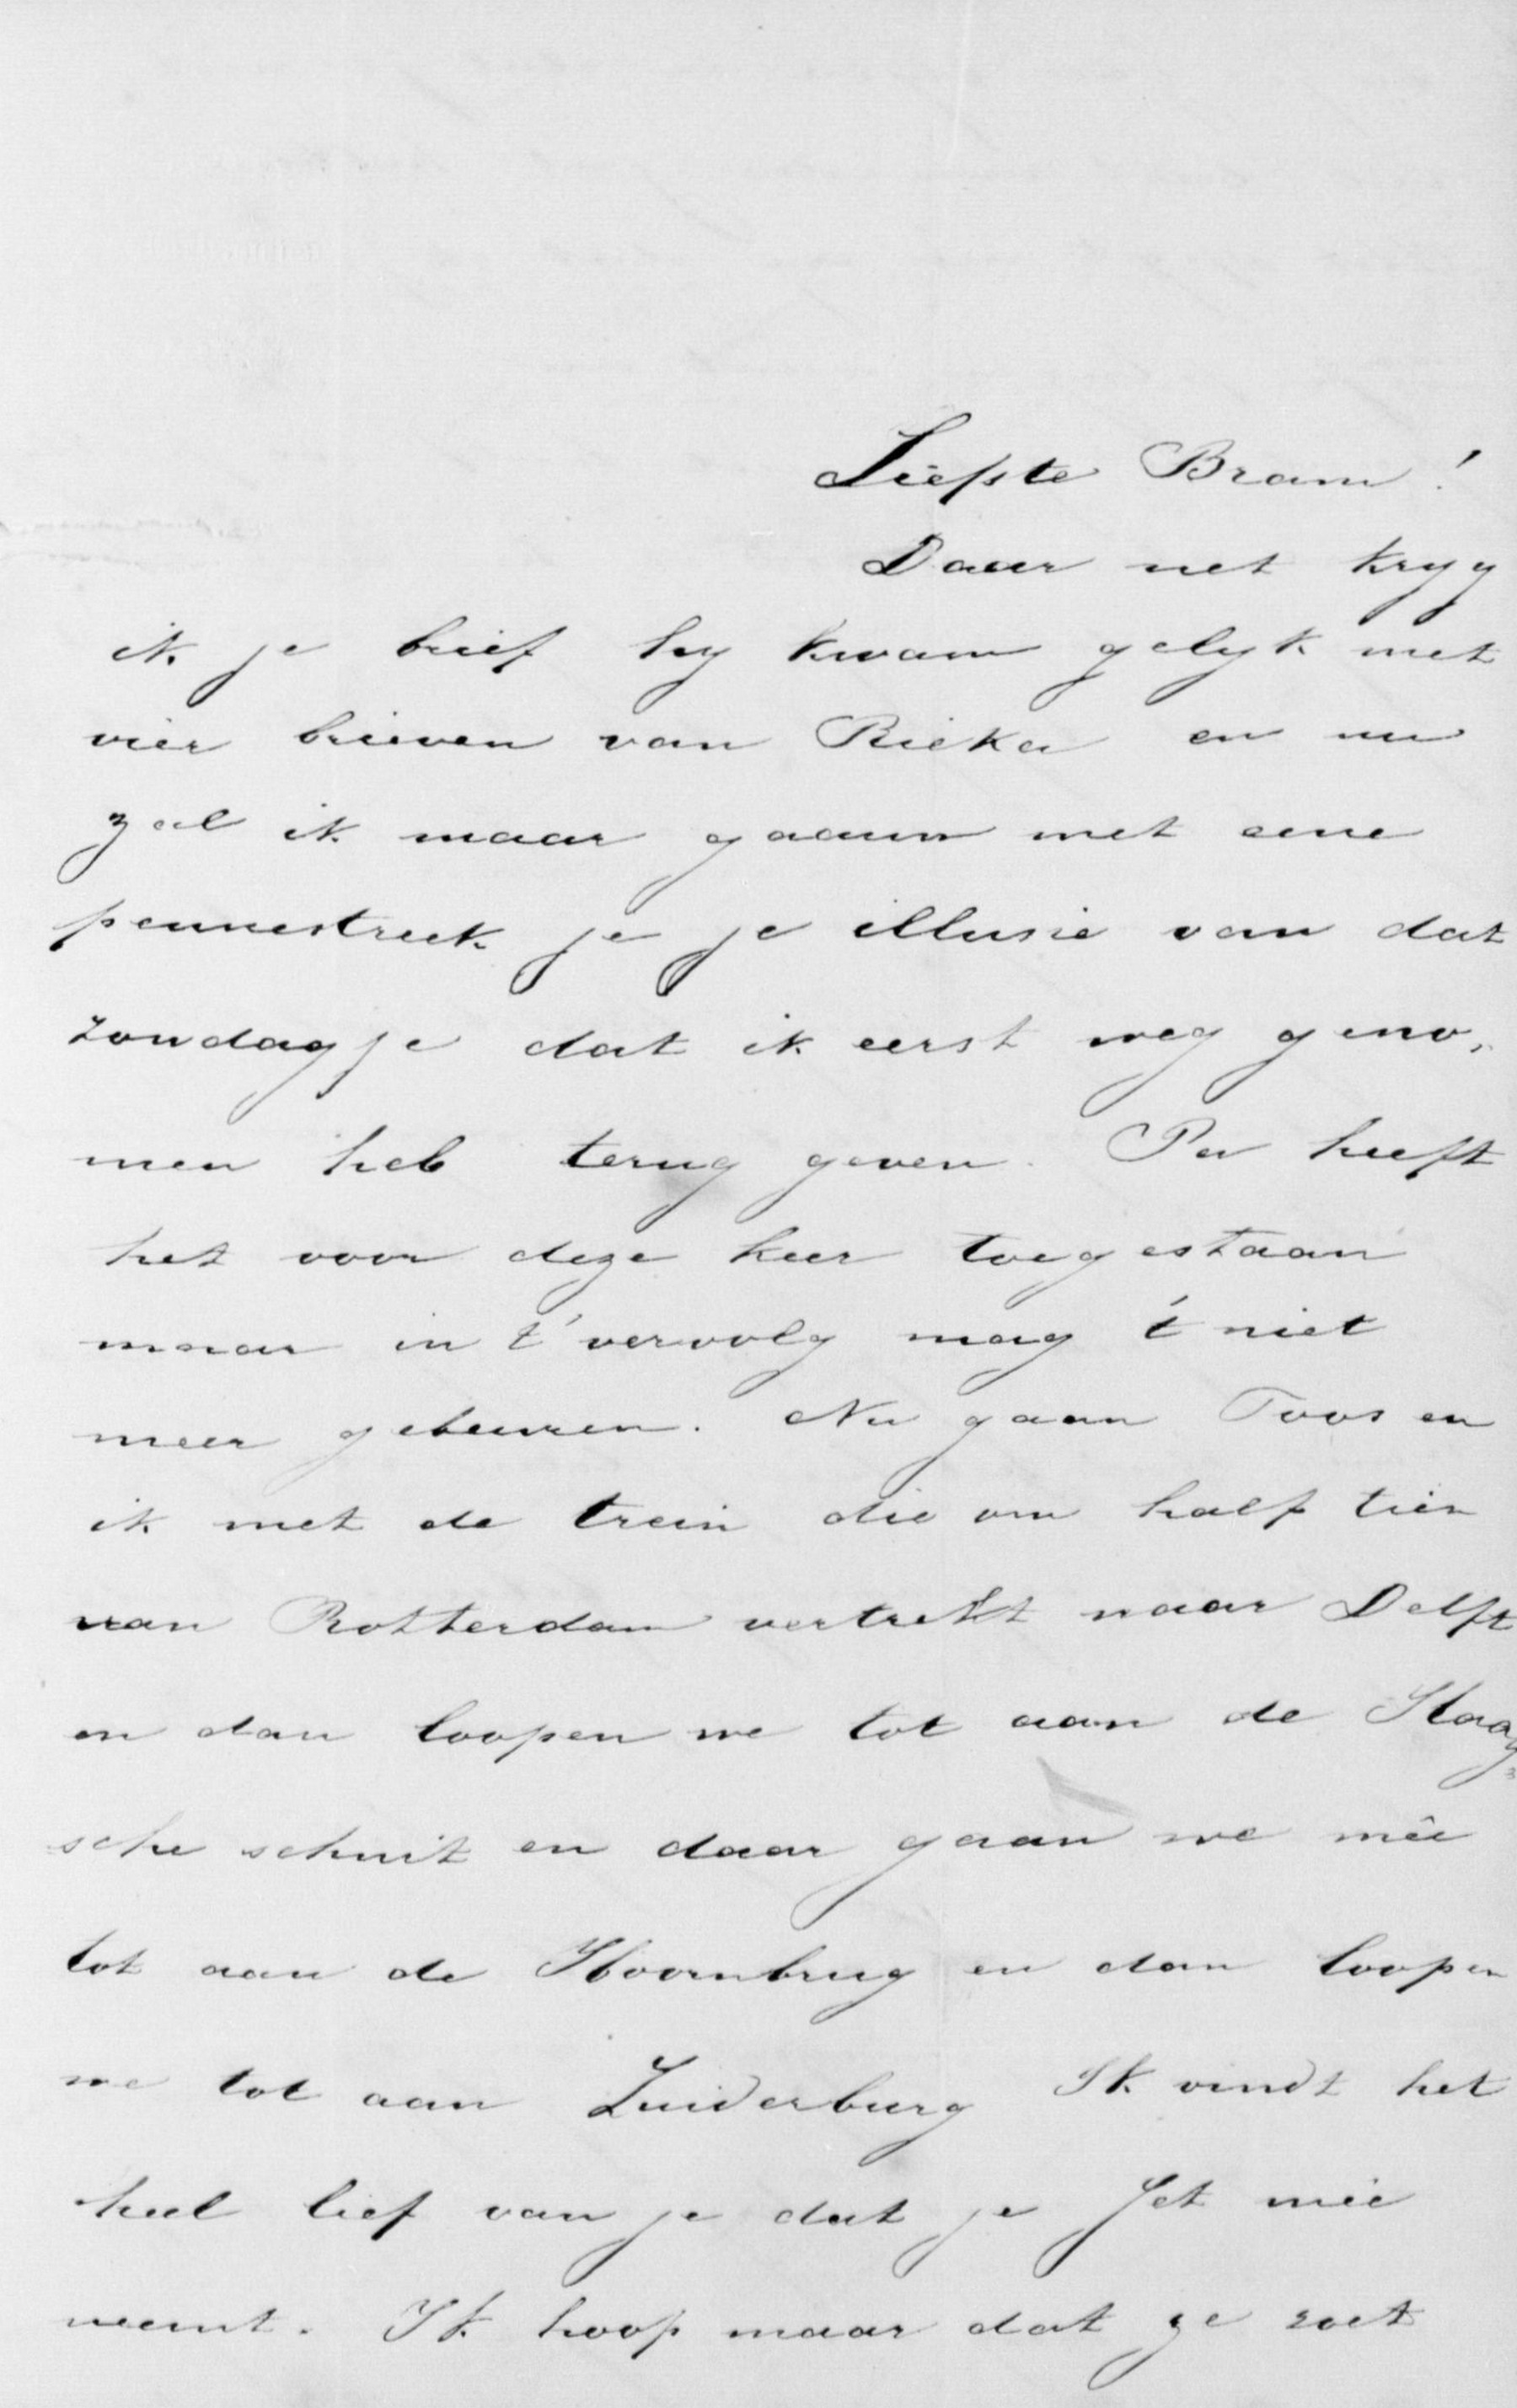 Liefste Bram!
Daar net kryg
ik je brief hy kwam gelyk met
vier brieven van Rieka en nu
zal ik maar gaauw met eene
pennestreek je je illusie van dat
zondagje dat ik eerst weg geno,
men heb terug geven. Pa heeft
het voor deze keer toegestaan
maar in t' vervolg mag 't niet
meer gebeuren. Nu gaan Toos en
ik met de trein die om half tien
van Rotterdam vertrekt naar Delft
en dan loopen we tot aan de Haag=
sche schuit en daar gaan we mêe
tot aan de Hoornbrug en dan loopen
we tot aan Zuiderburg Ik vindt het
heel lief van je dat je Jet mêe
neemt. Ik hoop maar dat ze zoet